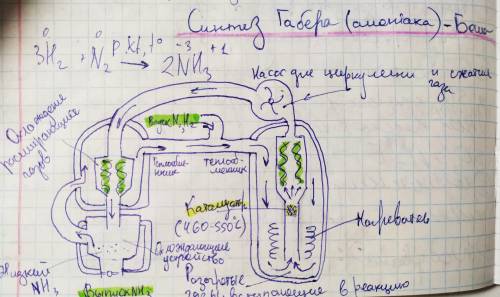 Синтез Габера (амоніака) - Бош
3H₂⁰ + N₂⁰ p, kt, t° → 2N⁻³H₃⁺¹
Насос для циркуляции и сжатия
газа
Охлаждение
расширяющих
газов
Ввод N₂H₂
теплооб-
менник
теплоо-
бменник
Катализ.
(460-550°C)
Нагреватель
Охлаждающее
устройство
Жидкий
NH₃
Выпуск NH₃
Разогретые
газы, вступающие в реакцию